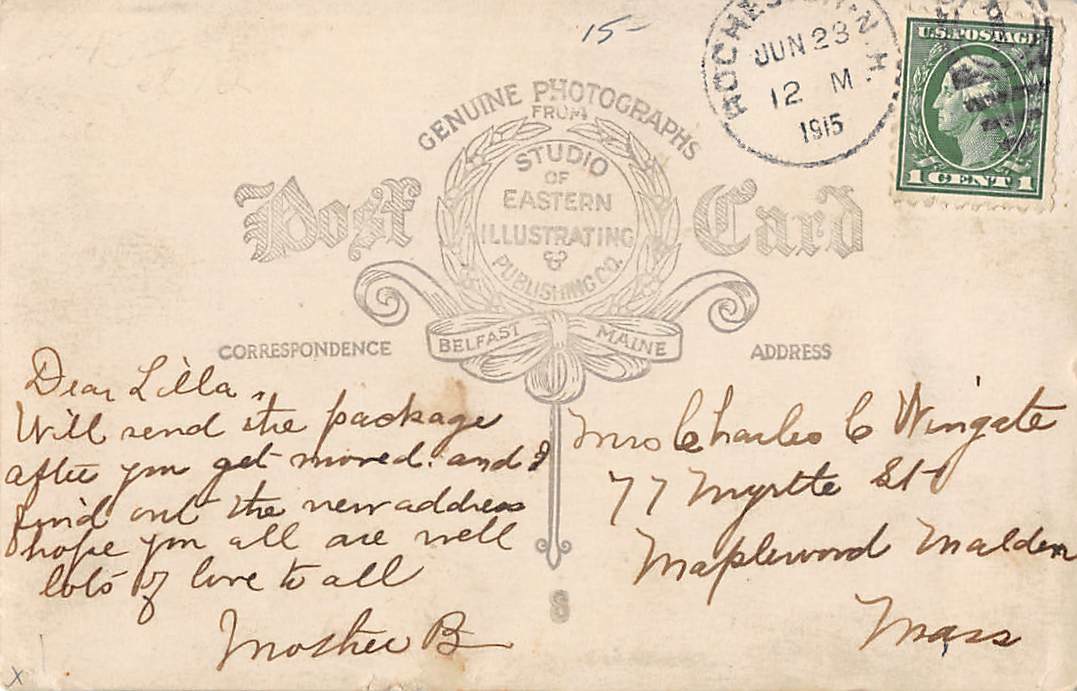 15-
ROCHESTER, N.H.
JUN 23
12 M
1915
U.S. POSTAGE
1 CENT 1
GENUINE PHOTOGRAPHS
FROM
STUDIO
OF
EASTERN
ILLUSTRATING
&
PUBLISHING CO.
Post Card
BELFAST MAINE
CORRESPONDENCE
ADDRESS
Dear Lilla,
Will send the package
after you get moved. and I
find out the new address
hope you all are well
lots of love to all
Mother B
Mrs Charles C Wingate
77 Myrtle St
Maplewood Malden
Mass
8
x